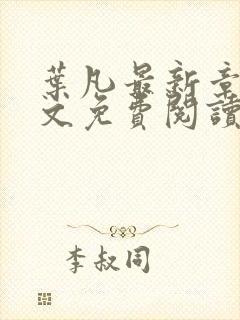 葉凡最新章
文免費閱讀
李叔同